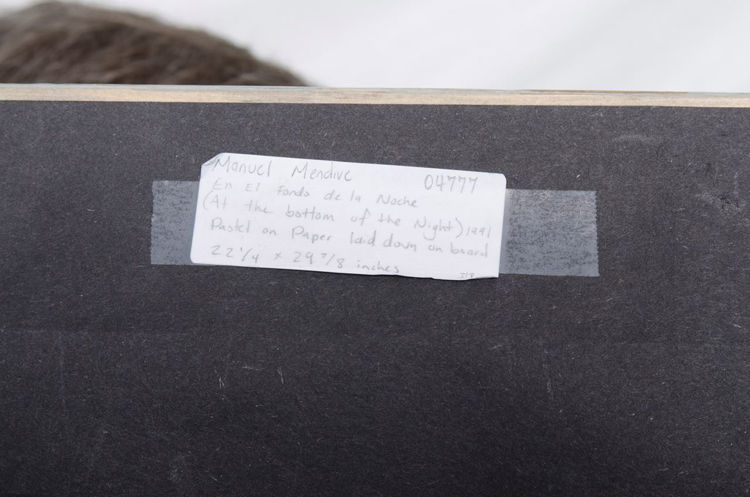 Manuel Mendive 04777
En El Fondo de la Noche
(At the bottom of the Night) 1991
Pastel on Paper laid down on board
22 1/4 x 29 7/8 inches